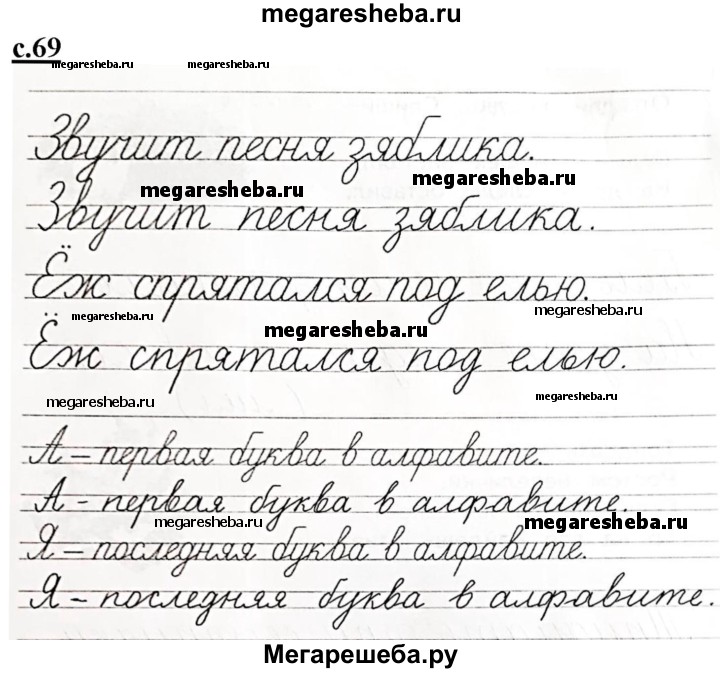 megaresheba.ru
с.69
megaresheba.ru megaresheba.ru
Звучит песня зяблика.
megaresheba.ru megaresheba.ru
Звучит песня зяблика.
Ёж спрятался под елью.
megaresheba.ru megaresheba.ru megaresheba.ru
Ёж спрятался под елью.
megaresheba.ru megaresheba.ru
А – первая буква в алфавите.
А - первая буква в алфавите.
megaresheba.ru megaresheba.ru
Я – последняя буква в алфавите.
Я – последняя буква в алфавите.
Мегарешеба.ру